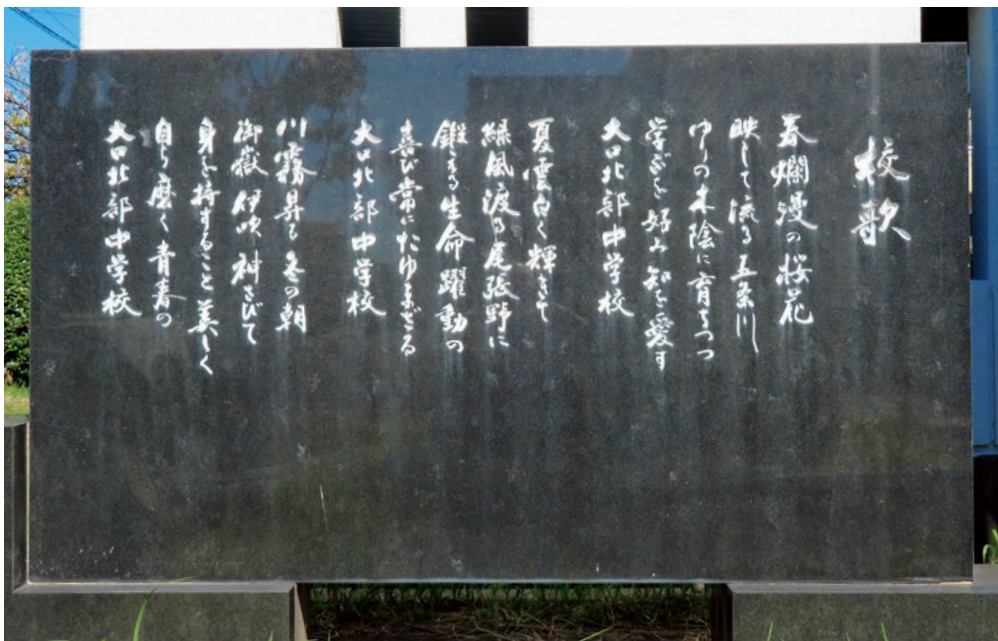 校歌
春爛漫の桜花
映して流る五条川
ゆりの木陰に育ちつつ
学ぶを好み知を愛す
大口北部中学校
夏雲白く輝きて
緑風渡る尾張野に
鍛える生命躍動の
喜び常にたゆまざる
大口北部中学校
川霧昇る冬の朝
御嶽伊吹神さびて
身を持すること美しく
自ら磨く青春の
大口北部中学校